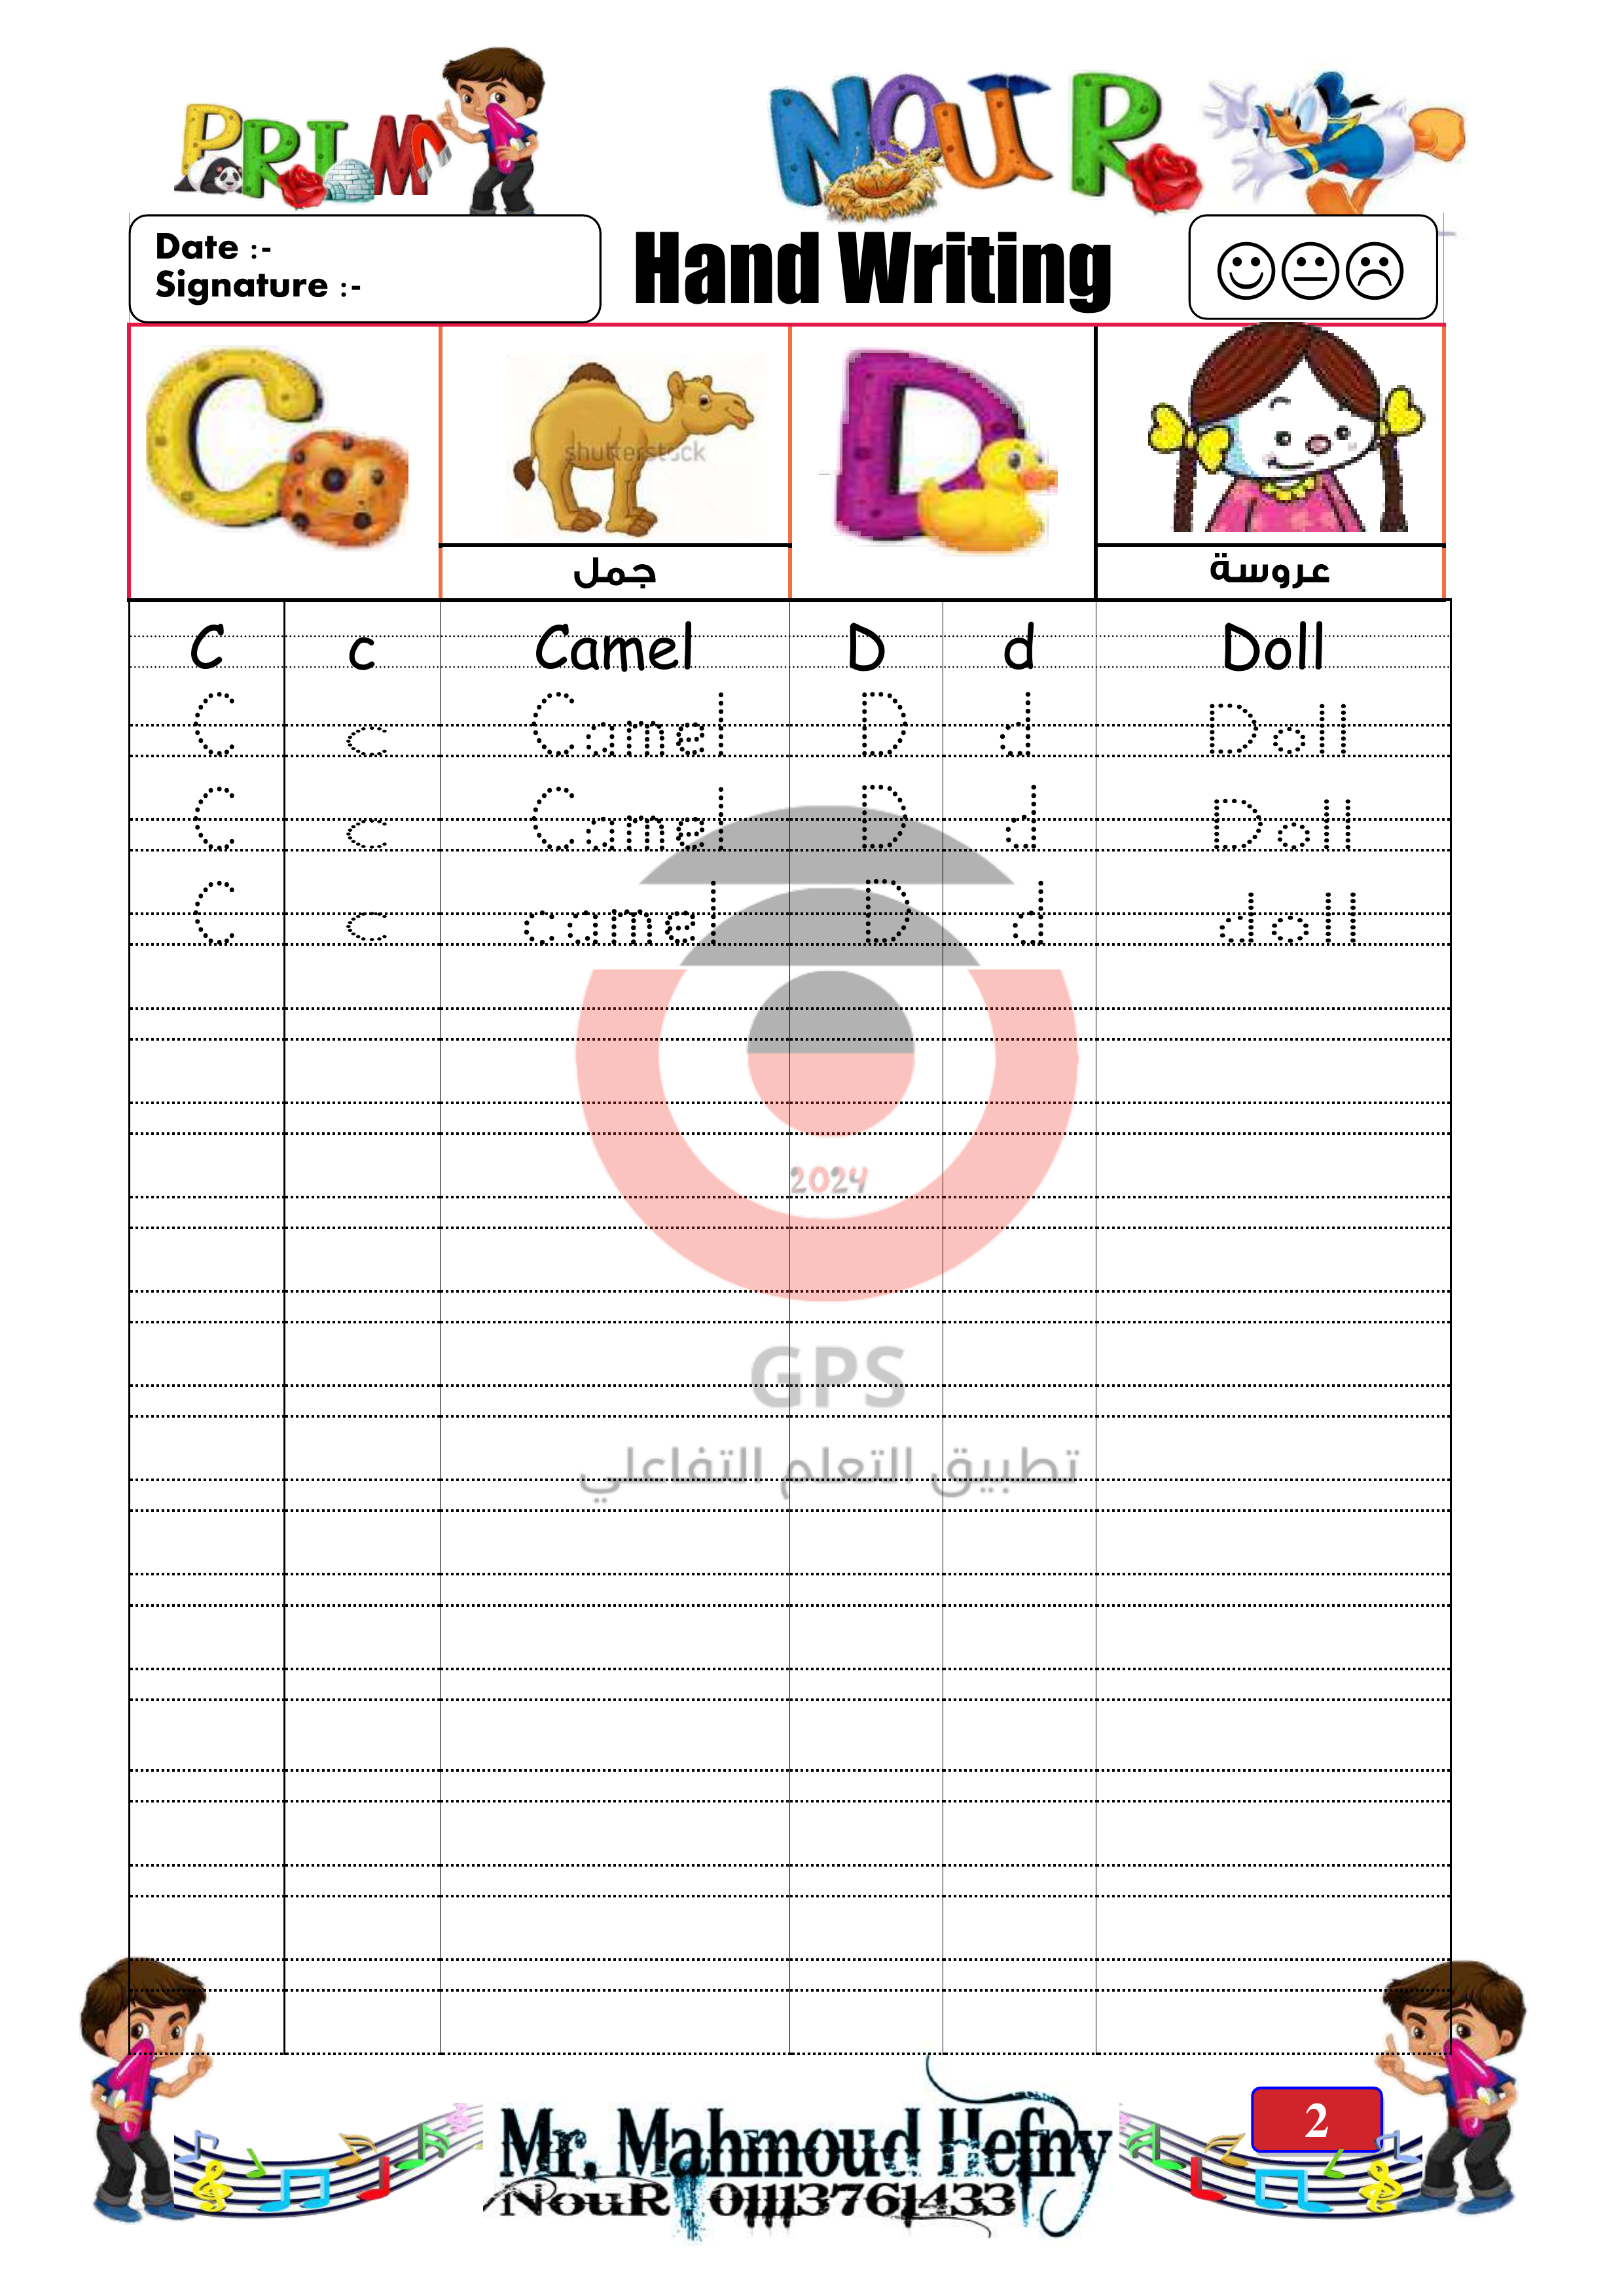 PRIM NOUR
Date :-
Signature :-
Hand Writing
C D
shutterstock
جمل عروسة
C c Camel D d Doll
C c Camel D d Doll
C c Camel D d Doll
C c camel D d doll
2024
GPS
تطبيق التعلم التفاعلي
2
Mr. Mahmoud Hefny
NouR 01113761433